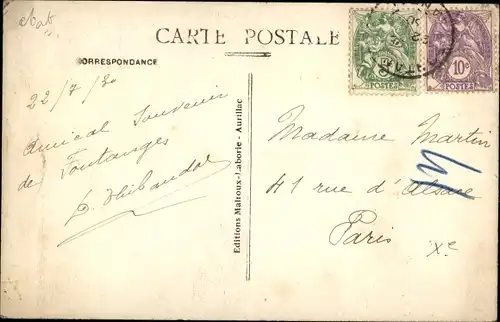 CARTE POSTALE
CORRESPONDANCE
22/7/30
amical Souvenir
de Fontanges
Editions Malroux-Laborie - Aurillac
5c
POSTES
10c
POSTES
Madame Martin
41 rue d'Alsace
Paris
Xe